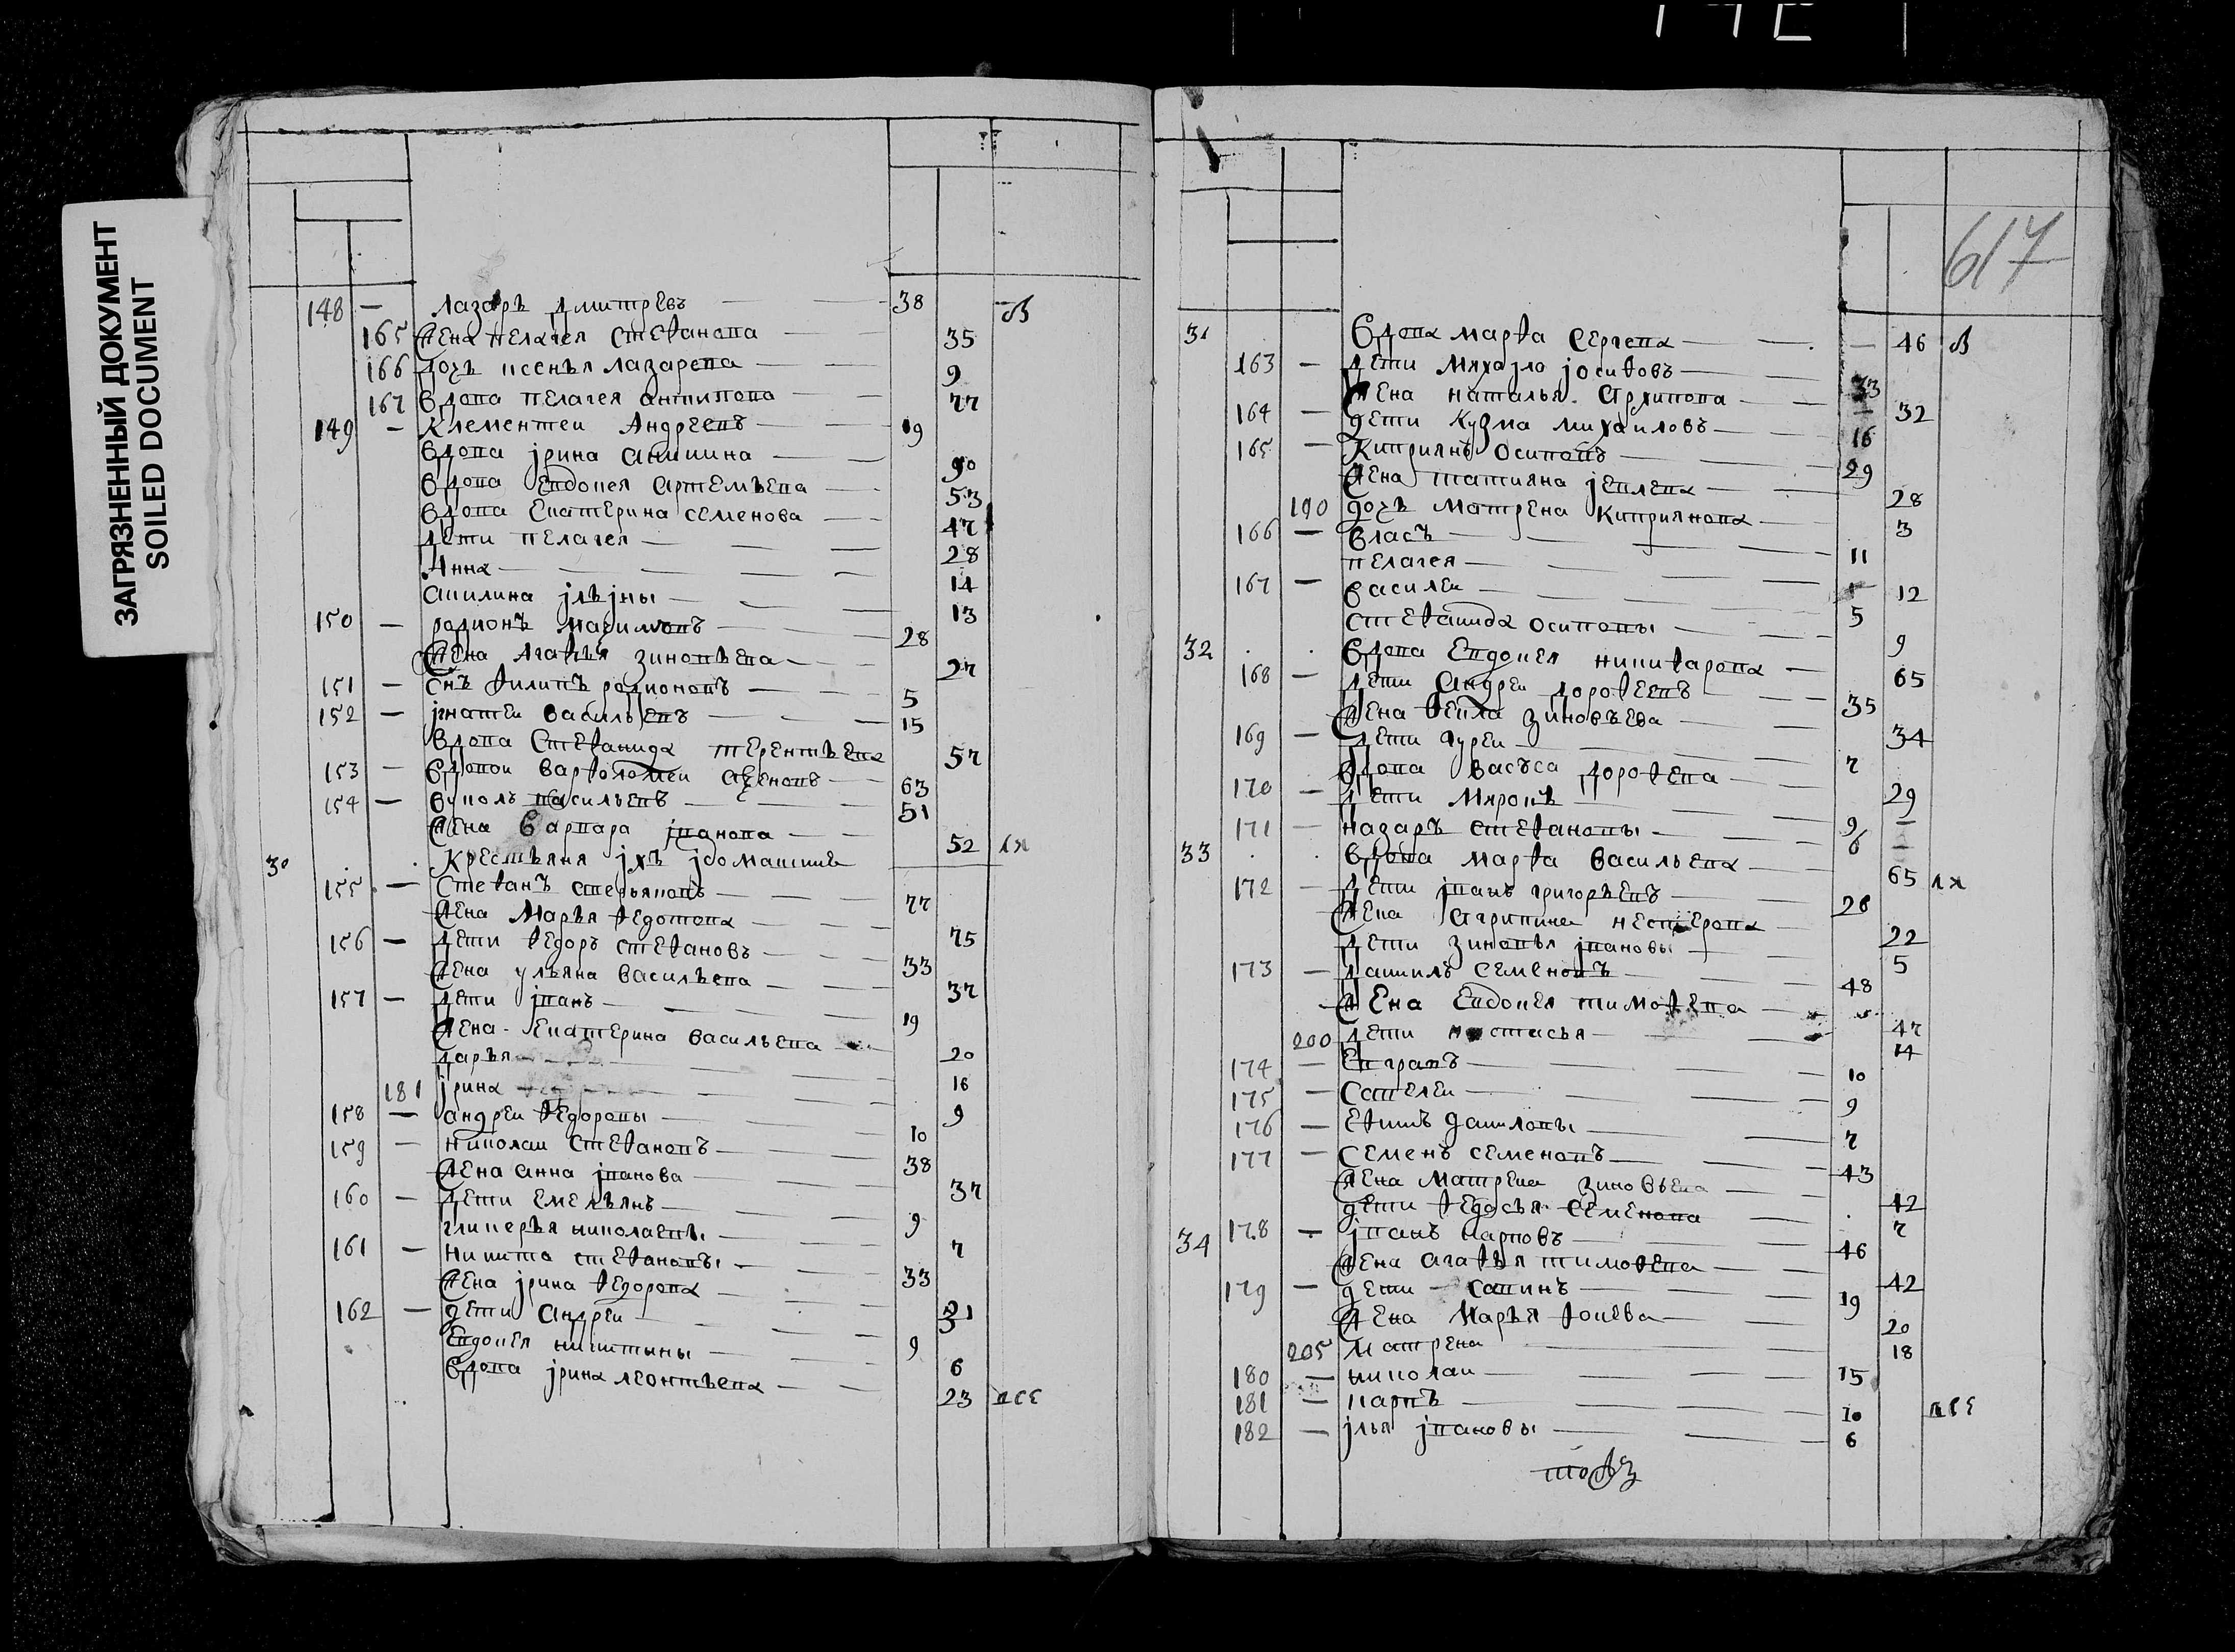 ЗАГРЯЗНЕННЫЙ ДОКУМЕНТ
SOILED DOCUMENT
148 — Лазаръ дмитревъ — 38 В
165 жена пелагея Стефанова — 35
166 дочь ксенья лазарева — 9
167 вдова пелагея антипова — 77
149 — Клементеи Андреевъ — 19
вдова јрина аникина — 90
вдова Евдокея артемьева — 53
вдова Екатерина семенова — 47
дети пелагея — 28
Анна — 14
акилина јльјны — 13
150 — родионъ максимовъ — 28
жена Агафья зиновьева — 27
151 — снъ филипъ родионовъ — 5
152 — јгнатеи васильевъ — 15
вдова Стефанида терентьева 57
153 — вдовои варфоломеи — 63
154 — вуколъ васильевъ — 51
жена варвара јванова — 52 ля
30 Крестьяня јхъ
155 — Стефанъ — 77
жена Марья федотова — 75
156 — дети федоръ стефановъ — 33
жена ульяна васильева — 37
157 — дети јванъ — 19
жена Екатерина васильева — 20
дарья — 16
181 јрина — 9
158 — андреи федоровы — 10
159 — николаи стефановъ — 38
жена анна јванова — 37
160 — дети емельянъ — 9
гликерья николаевы — 7
161 — никита стефановы — 33
жена јрина федорова — 31
162 — дети андреи — 9
Евдокея никитины — 6
вдова јрина леонтьева — 23 все
617
31 вдова марфа сергева — 46 В
163 — дети михајло јосифовъ — 33
жена наталья архипова — 32
164 — дети кузма михаиловъ — 16
165 — киприянъ осиповъ — 29
жена татияна јевлева — 28
190 дочь матрена киприянова — 3
166 — власъ — 11
пелагея — 12
167 — василеи — 5
стефанида осиповы — 9
32 вдова Евдокея никифарова — 65
168 — дети андреи дорофеевъ — 35
жена фекла зиновьева — 34
169 — дети гуреи — 7
вдова васъса дорофева — 29
170 — дети Миронъ — 9 —
171 — назаръ стефановы — 6 —
33 вдова марфа васильева — 65 ля
172 — дети јванъ григорьевъ — 28
жена агрипина нестерова — 22
дети зиновья јвановы — 5
173 — данилъ семеновъ — 48
жена Евдокея тимофева — 47
200 дети настасья — 14
174 — Евграфъ — 10
175 — Савелеи — 9
176 — Ефимъ даниловы — 7
177 — семенъ семеновъ — 43
жена матрена зиновьева — 42
дети федосья семенова — 7
34 178 — јванъ карповъ — 46
жена агафья тимофева — 42
179 — дети — савинъ — 19
жена марья фокева — 20
205 матрена — 18
180 — николаи — 15
181 — карпъ — 10 все
182 — јлья јвановы — 6